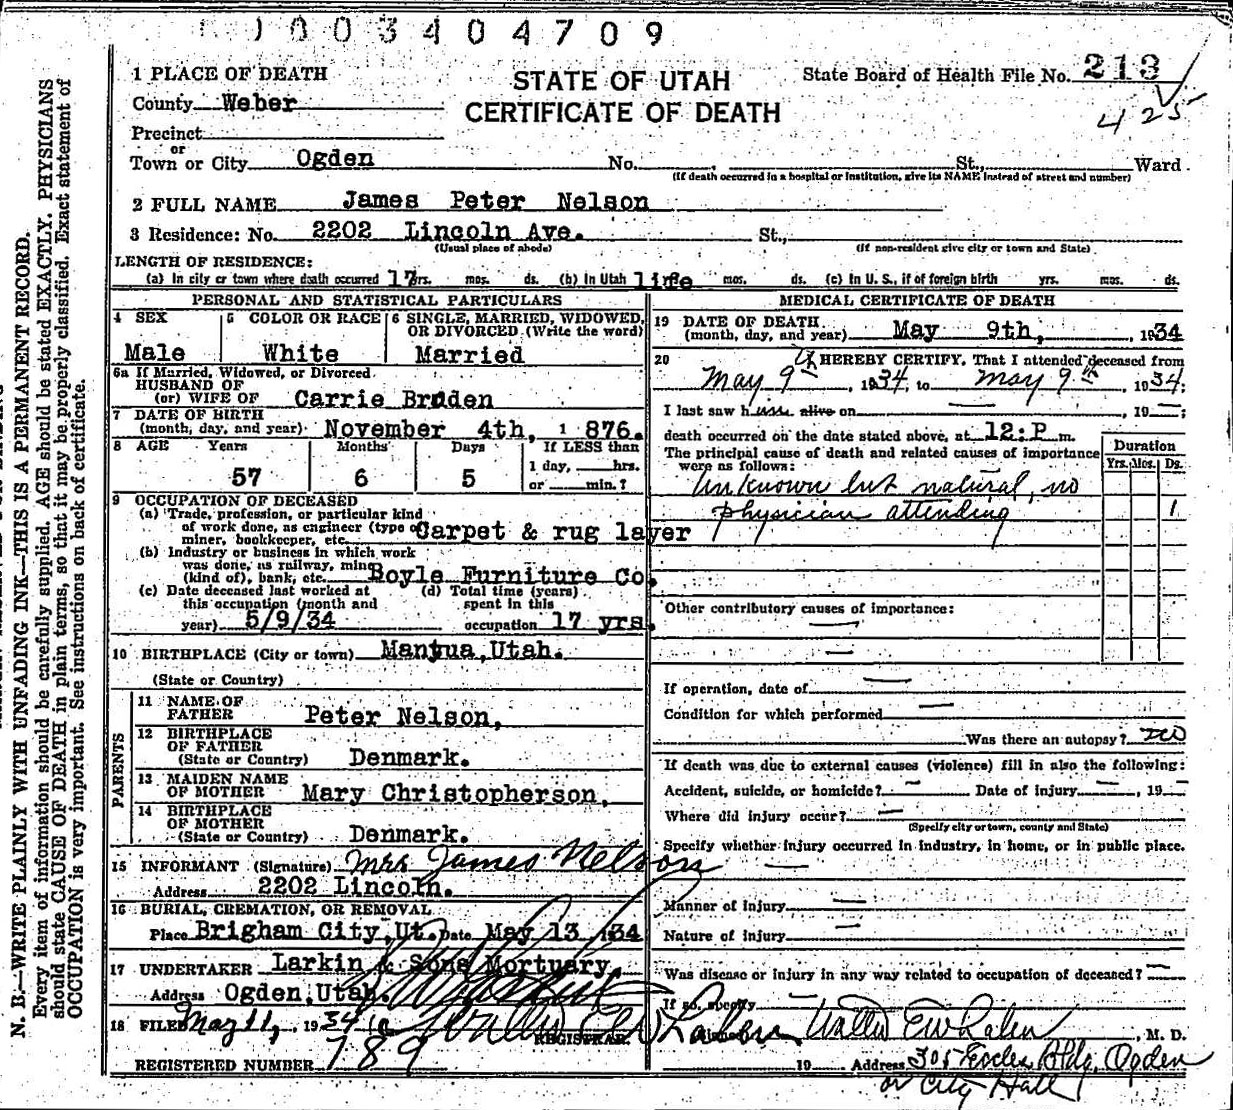 003404709
1 PLACE OF DEATH
STATE OF UTAH
CERTIFICATE OF DEATH
State Board of Health File No. 213
425
County Weber
Precinct
or
Town or City Ogden No. St., Ward
(If death occurred in a hospital or institution, give its NAME instead of street and number)
2 FULL NAME James Peter Nelson
3 Residence: No. 2202 Lincoln Ave. St.,
(Usual place of abode) (If non-resident give city or town and State)
LENGTH OF RESIDENCE:
(a) In city or town where death occurred 17 yrs. mos. ds. (b) In Utah life mos. ds. (c) In U. S., if of foreign birth yrs. mos. ds.
PERSONAL AND STATISTICAL PARTICULARS
4 SEX
Male
5 COLOR OR RACE
White
6 SINGLE, MARRIED, WIDOWED,
OR DIVORCED (Write the word)
Married
6a If Married, Widowed, or Divorced
HUSBAND OF
(or) WIFE OF Carrie Braden
7 DATE OF BIRTH
(month, day, and year) November 4th, 1876.
8 AGE Years Months Days If LESS than
57 6 5 1 day, hrs.
or min.?
9 OCCUPATION OF DECEASED
(a) Trade, profession, or particular kind
of work done, as engineer (type of
miner, bookkeeper, etc. Carpet & rug layer
(b) Industry or business in which work
was done, as railway, mine
(kind of), bank, etc. Boyle Furniture Co.
(c) Date deceased last worked at
this occupation (month and
year) 5/9/34
(d) Total time (years)
spent in this
occupation 17 yrs.
10 BIRTHPLACE (City or town) Mantua, Utah.
(State or Country)
PARENTS
11 NAME OF
FATHER Peter Nelson,
12 BIRTHPLACE
OF FATHER
(State or Country) Denmark.
13 MAIDEN NAME
OF MOTHER Mary Christopherson,
14 BIRTHPLACE
OF MOTHER
(State or Country) Denmark.
15 INFORMANT (Signature) Mrs James Nelson
Address 2202 Lincoln.
16 BURIAL, CREMATION, OR REMOVAL
Place Brigham City, Ut. Date May 13 1934
17 UNDERTAKER Larkin & Sons Mortuary,
Address Ogden, Utah.
18 FILED May 11, 1934
REGISTRAR.
REGISTERED NUMBER 789
MEDICAL CERTIFICATE OF DEATH
19 DATE OF DEATH
(month, day, and year) May 9th, 1934
20 I HEREBY CERTIFY, That I attended deceased from
May 9th, 1934, to May 9th, 1934;
I last saw him alive on —, 19—;
death occurred on the date stated above, at 12: P m.
The principal cause of death and related causes of importance
were as follows:
Duration
Yrs. Mos. Ds.
Unknown but natural, no
physician attending 1
Other contributory causes of importance:
—
—
If operation, date of —
Condition for which performed —
Was there an autopsy? no
If death was due to external causes (violence) fill in also the following:
Accident, suicide, or homicide? — Date of injury —, 19—
Where did injury occur? —
(Specify city or town, county and State)
Specify whether injury occurred in industry, in home, or in public place.
—
Manner of injury —
Nature of injury —
Was disease or injury in any way related to occupation of deceased? —
If so, specify —
M. D.
19 Address 305 Eccles Bldg, Ogden
or City Hall
N. B.—WRITE PLAINLY WITH UNFADING INK—THIS IS A PERMANENT RECORD.
Every item of information should be carefully supplied. AGE should be stated EXACTLY. PHYSICIANS
should state CAUSE OF DEATH in plain terms, so that it may be properly classified. Exact statement of
OCCUPATION is very important. See instructions on back of certificate.